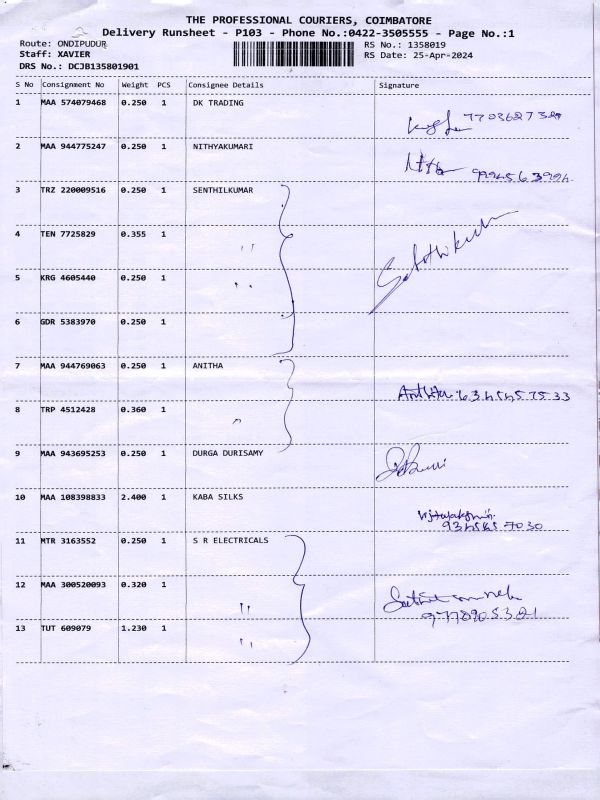 THE PROFESSIONAL COURIERS, COIMBATORE
Delivery Runsheet - P103 - Phone No.:0422-3505555 - Page No.:1
Route: ONDIPUDUR
Staff: XAVIER
DRS No.: DCJB135801901
RS No.: 1358019
RS Date: 25-Apr-2024
S No Consignment No Weight PCS Consignee Details Signature
1 MAA 574079468 0.250 1 DK TRADING
2 MAA 944775247 0.250 1 NITHYAKUMARI
3 TRZ 220009516 0.250 1 SENTHILKUMAR
4 TEN 7725829 0.355 1 ''
5 KRG 4605440 0.250 1 ''
6 GDR 5383970 0.250 1
7 MAA 944769063 0.250 1 ANITHA
8 TRP 4512428 0.360 1 ''
9 MAA 943695253 0.250 1 DURGA DURISAMY
10 MAA 108398833 2.400 1 KABA SILKS
11 MTR 3163552 0.250 1 S R ELECTRICALS
12 MAA 300520093 0.320 1 ''
13 TUT 609079 1.230 1 ''